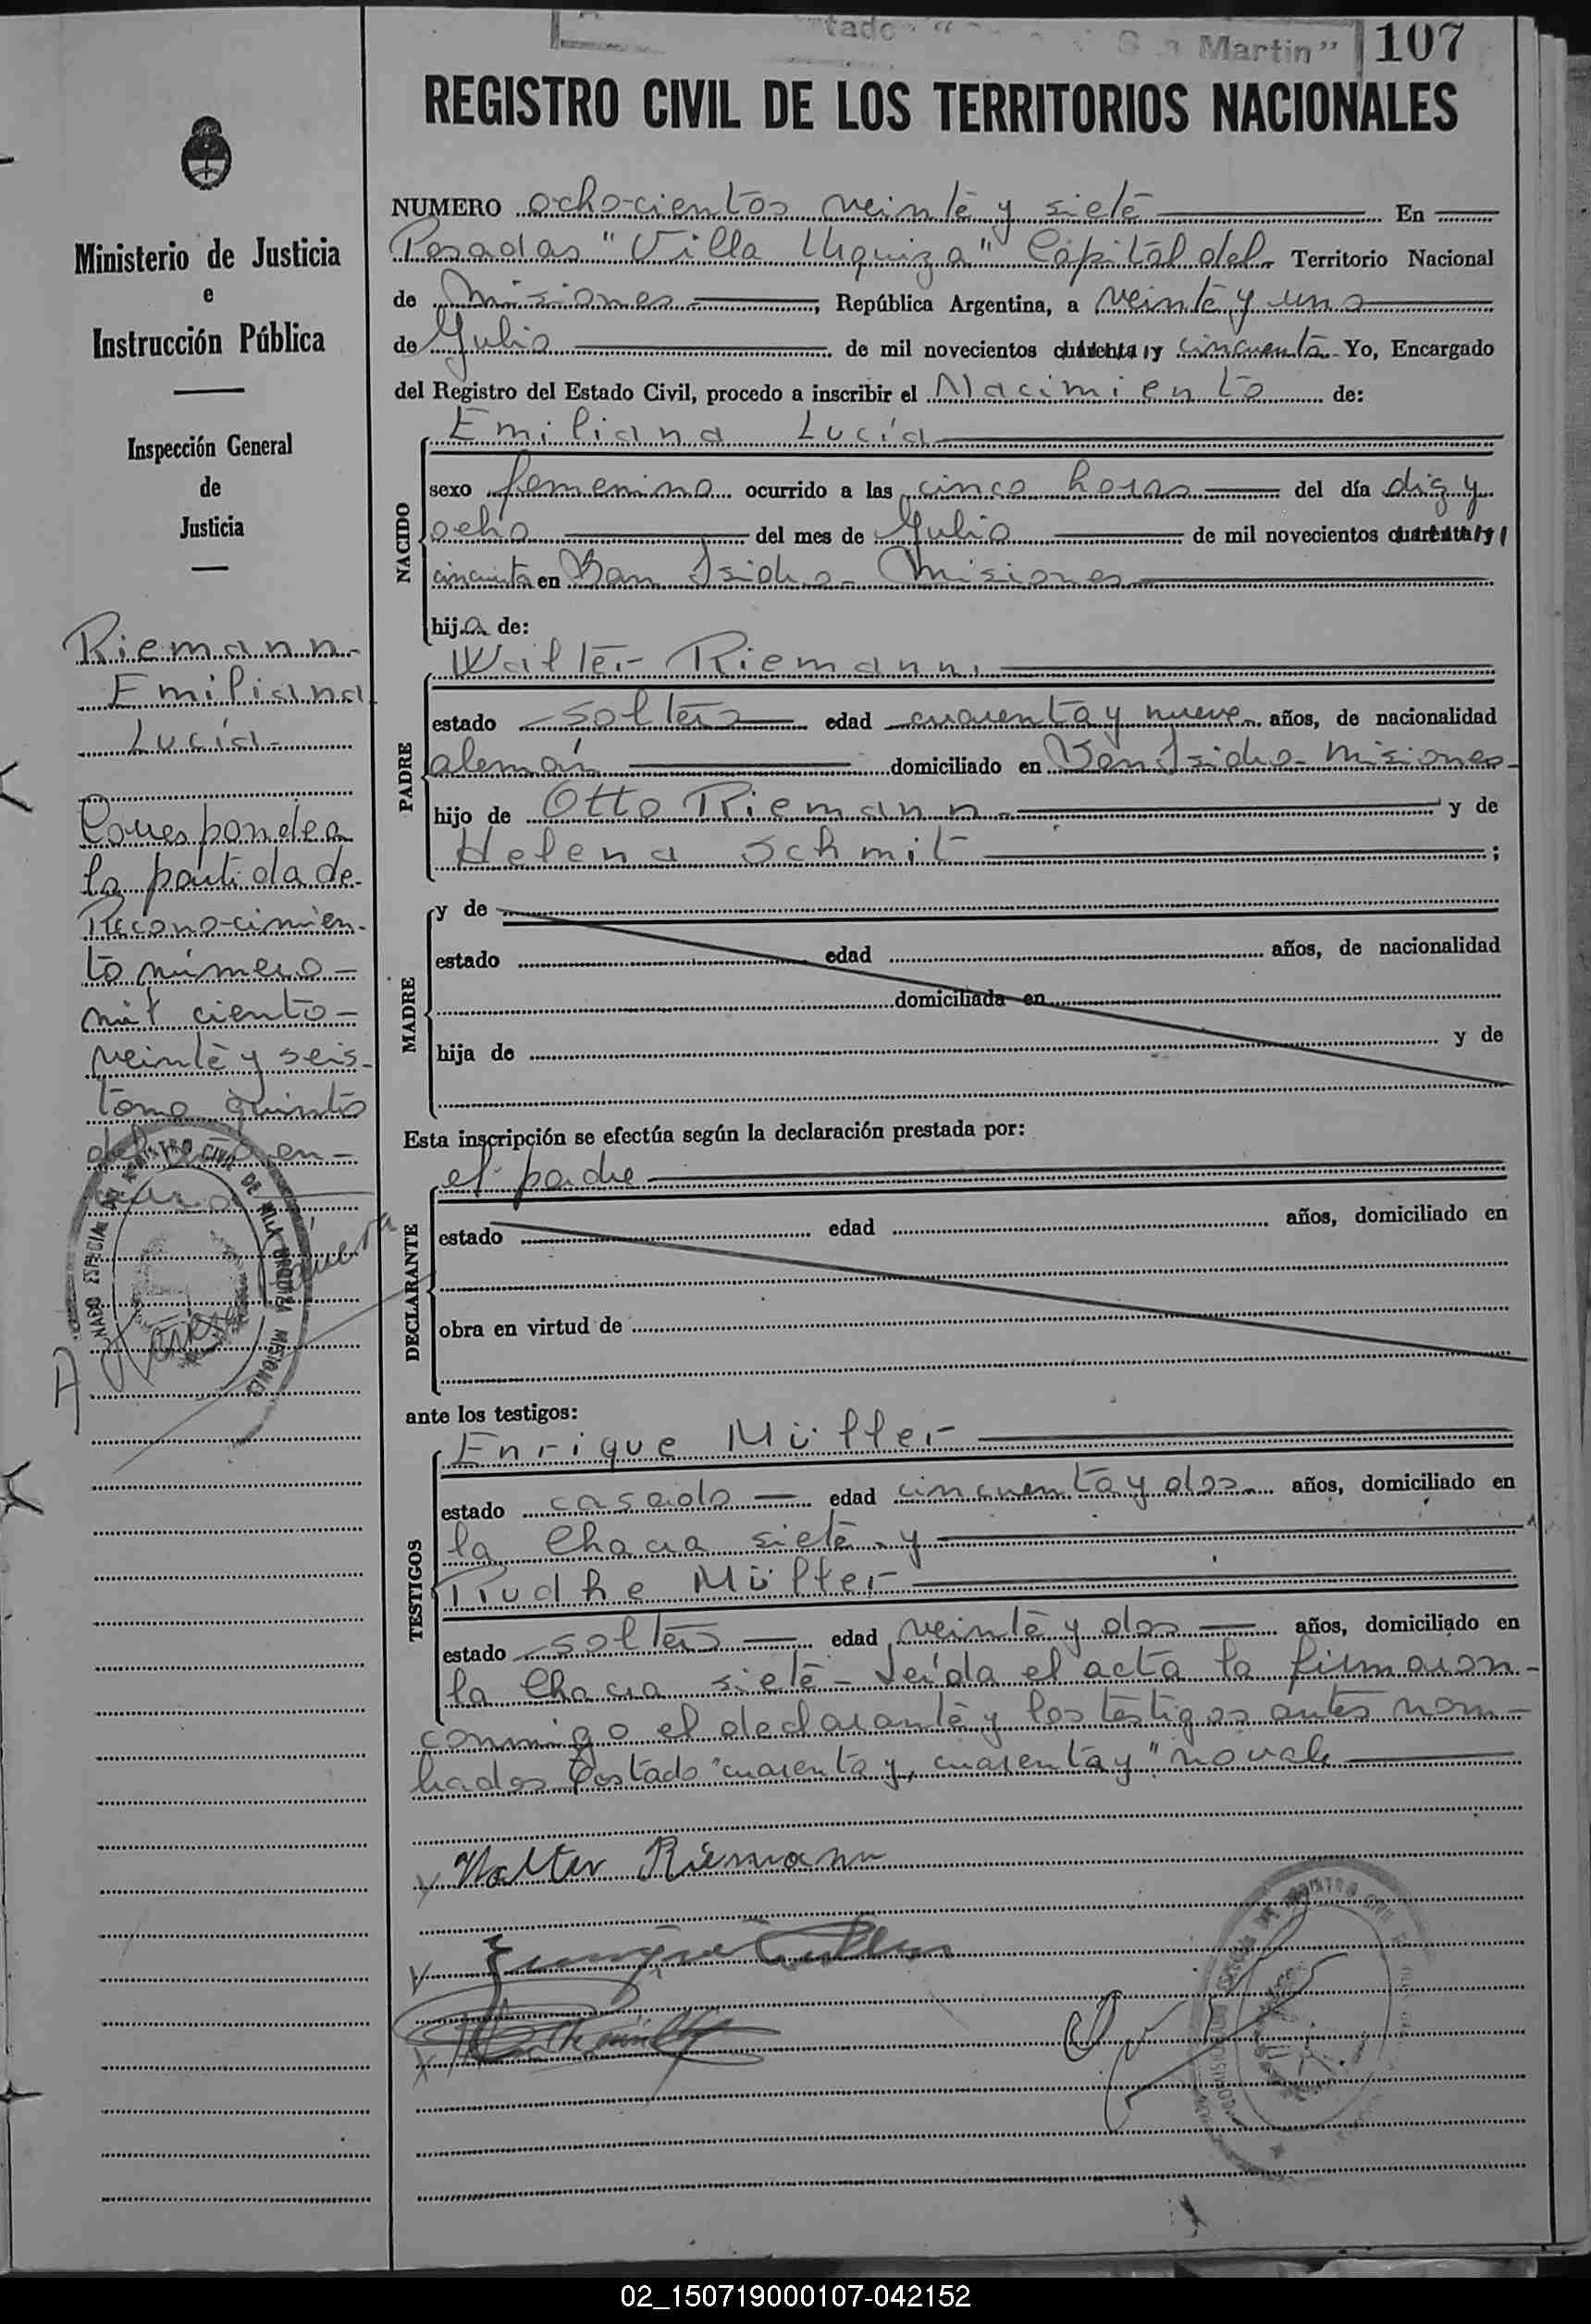 tado San Martin" 107
REGISTRO CIVIL DE LOS TERRITORIOS NACIONALES
NUMERO ocho-cientos veinte y siete En
Posadas "Villa Urquiza" Capital del Territorio Nacional
de Misiones, República Argentina, a veinte y uno
de Julio de mil novecientos cuarenta y cincuenta. Yo, Encargado
del Registro del Estado Civil, procedo a inscribir el Nacimiento de:
Emiliana Lucía
NACIDO
sexo femenino ocurrido a las cinco horas del día diz y
ocho del mes de Julio de mil novecientos cuarenta y
cincuenta en San Isidro - Misiones
hija de:
PADRE
Walter Riemann
estado soltero edad cuarenta y nueve años, de nacionalidad
alemán domiciliado en San Isidro - Misiones
hijo de Otto Riemann y de
Helena Schmit ;
MADRE
y de
estado edad años, de nacionalidad
domiciliada en
hija de y de
Esta inscripción se efectúa según la declaración prestada por:
DECLARANTE
el padre
estado edad años, domiciliado en
obra en virtud de
ante los testigos:
TESTIGOS
Enrique Müller
estado casado edad cincuenta y dos años, domiciliado en
la Chacra siete y
Rudhe Müller
estado soltero edad veinte y dos años, domiciliado en
la Chacra siete - Leída el acta la firmaron
conmigo el declarante y los testigos antes nom-
brados Testado "cuarenta y, cuarenta y" no vale
Walter Riemann
Ministerio de Justicia
e
Instrucción Pública
Inspección General
de
Justicia
Riemann
Emiliana
Lucía
Corresponde a
la partida de
Reconocimien-
to número
mil ciento
veinte y seis
tomo quinto
REGISTRO CIVIL DE VILLA URQUIZA MISIONES
02_150719000107-042152